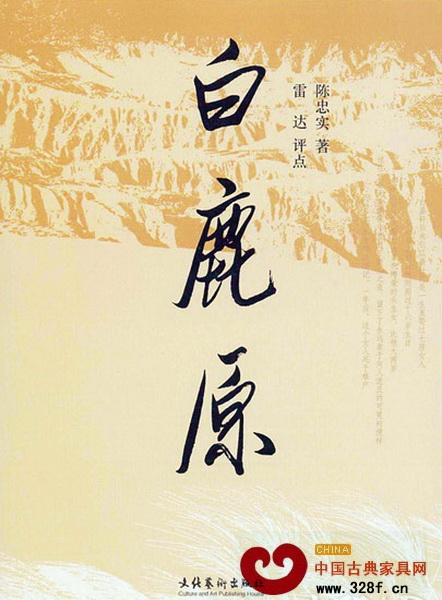 白鹿原
陈忠实 著
雷 达 评点
文化艺术出版社
Culture and Art Publishing House
CHINA
中国古典家具网
www.328f.cn